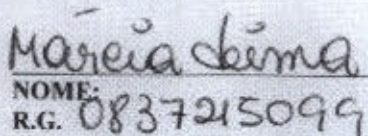 Márcia Lima
NOME:
R.G. 0837215099